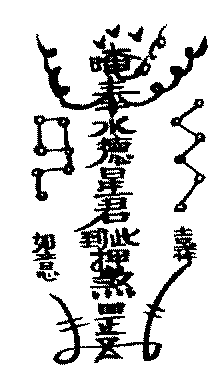 吉祥
唵奉水德星君到此押煞罡
如意